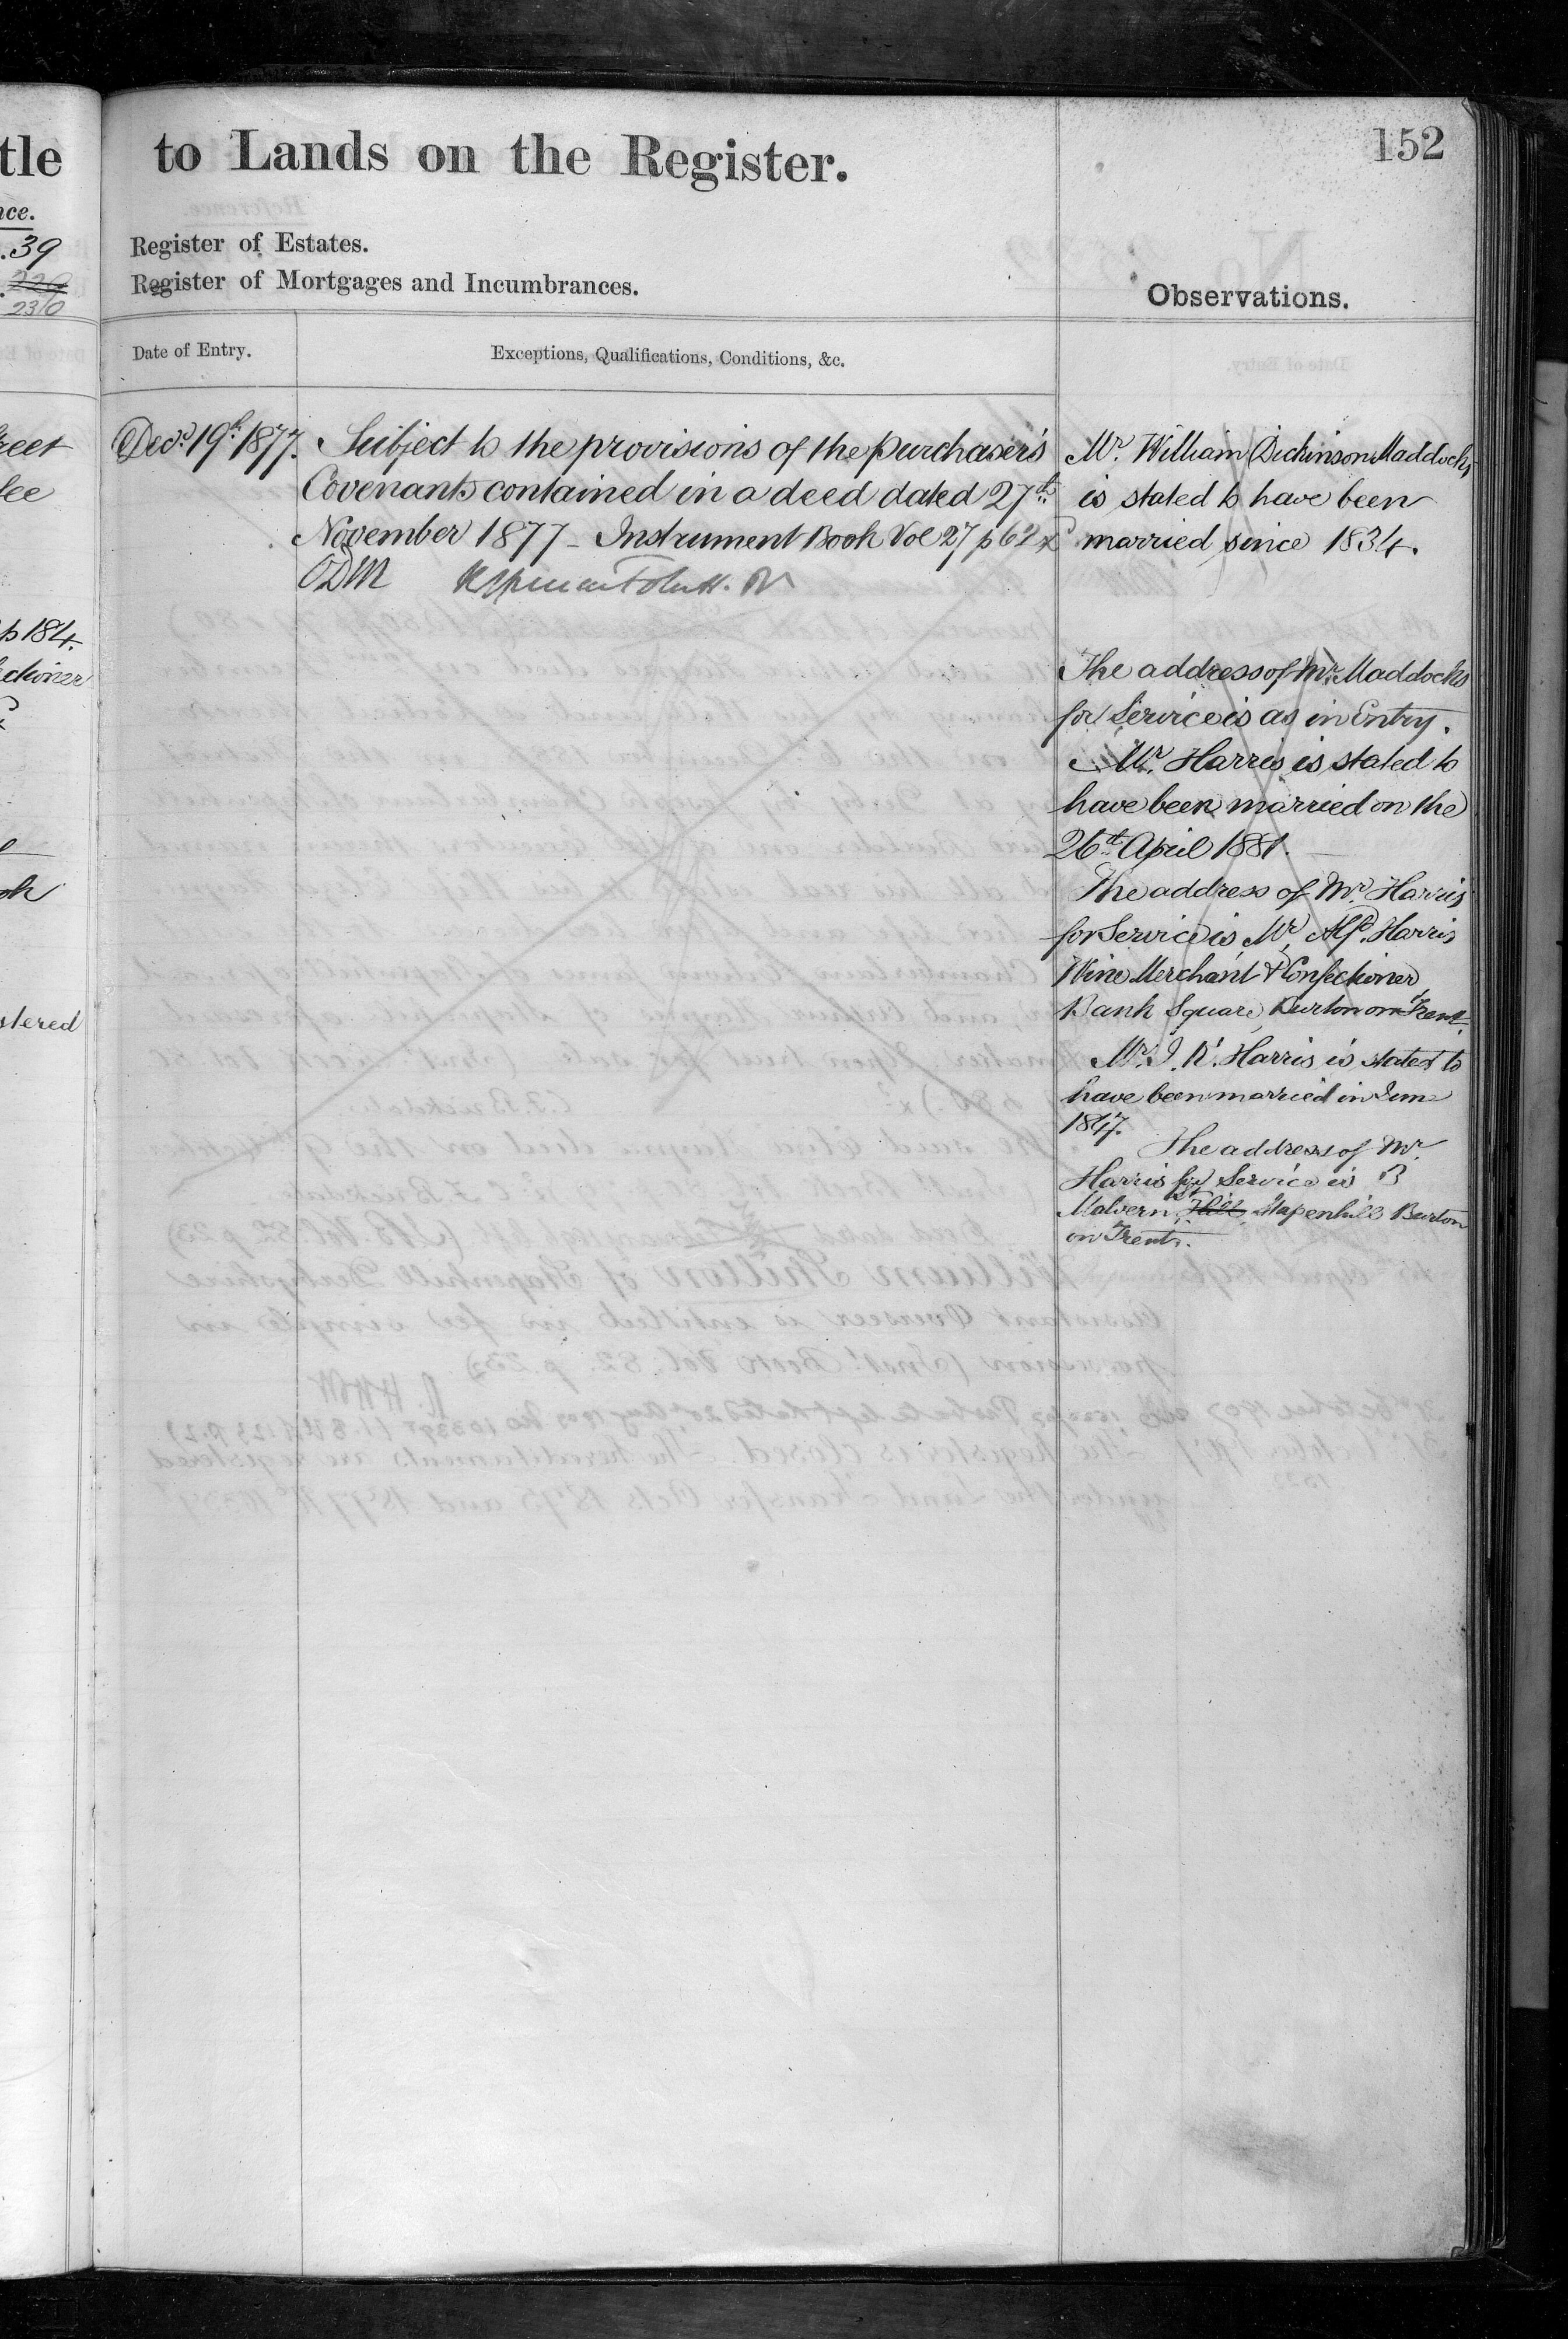 tle
to Lands on the Register.
152
nce.
. 39
Register of Estates.
Register of Mortgages and Incumbrances.
2310
Observations.
Date of Entry.
Exceptions, Qualifications, Conditions, &c.
Decr 19th 1877.
Subject to the provisions of the purchaser's
Covenants contained in a deed dated 27th
November 1877 - Instrument Book Vol 27 p 62
ODM
Mr. William Dickinson Maddocks
is stated to have been
married since 1834.
The address of Mr. Maddocks
for Service is as in Entry.
Mr. Harris is stated to
have been married on the
26th April 1881.
The address of Mr. Harris
for Service is Mr. Alfd. Harris
Wine Merchant & Confectioner
Bank Square, Burton on Trent.
Mr. J. R. Harris is stated to
have been married in June
1847.
The address of Mr.
Harris for Service is 3
Malvern St Hill Stapenhill Burton
on Trent.
reet
p 184.
ectioner
stered